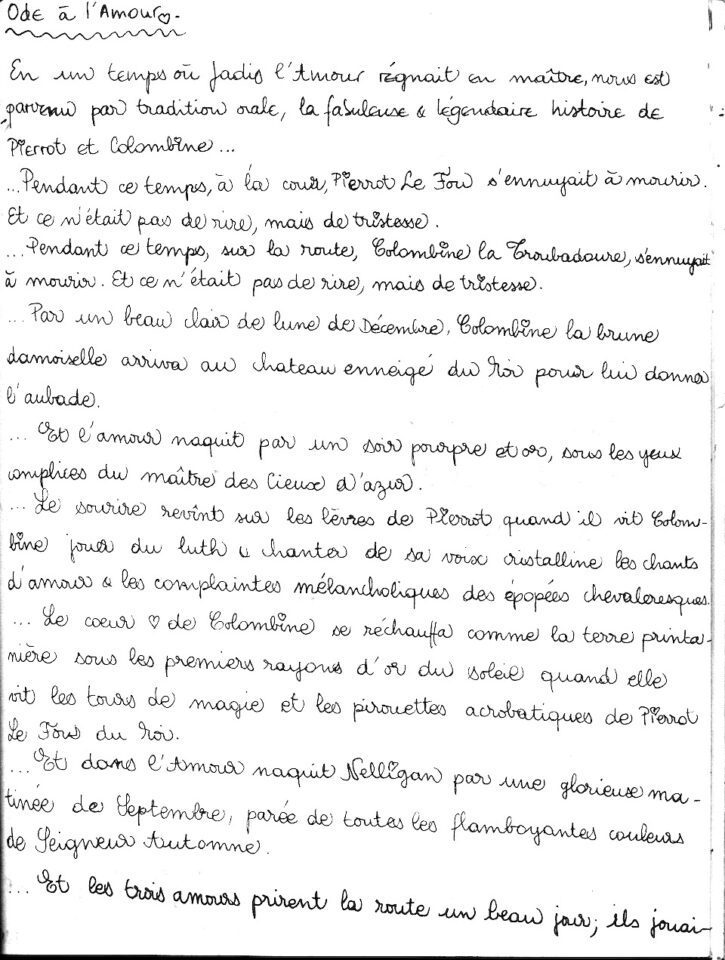 Ode à l'Amour♡.
En un temps où Jadis l'Amour régnait en maître, nous est
parvenu par tradition orale, la fabuleuse & légendaire histoire de
Pierrot et Colombine...
...Pendant ce temps, à la cour, Pierrot Le Fou s'ennuyait à mourir.
Et ce n'était pas de rire, mais de tristesse.
...Pendant ce temps, sur la route, Colombine la Troubadoure, s'ennuyait
à mourir. Et ce n'était pas de rire, mais de tristesse.
...Par un beau clair de lune de Décembre, Colombine la brune
damoiselle arriva au chateau enneigé du Roi pour lui donner
l'aubade.
...Et l'amour naquit par un soir pourpre et or, sous les yeux
complices du maître des Cieux d'azur.
...Le sourire revînt sur les lèvres de Pierrot quand il vit Colom-
bine jouer du luth & chanter de sa voix cristalline les chants
d'amour & les complaintes mélancholiques des épopées chevaleresques.
...Le coeur ♡ de Colombine se réchauffa comme la terre printa-
nière sous les premiers rayons d'or du soleil quand elle
vit les tours de magie et les pirouettes acrobatiques de Pierrot
Le Fou du Roi.
...Et dans l'Amour naquit Nelligan par une glorieuse ma-
tinée de Septembre, parée de toutes les flamboyantes couleurs
de Seigneur Automne.
...Et les trois amours prirent la route un beau jour; ils jouai-